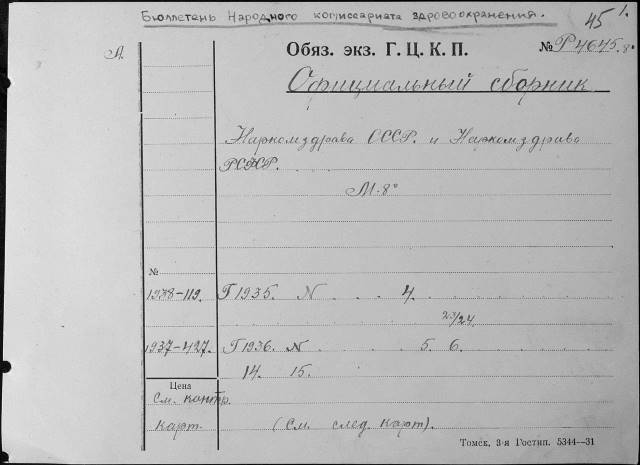 Бюллетень Народного комиссариата здравоохранения.
45 1.
А.
Обяз. экз. Г. Ц. К. П. № Р4645. 8°
Официальный сборник
Наркомздрава СССР. и Наркомздрава
РСФСР.
М. 8°
№
1938-119. Г 1935. N . . 4.
23/24.
1937-427. Г 1936. N . . . 5. 6.
14. 15.
Цена
См. контр.
карт. (См. след. карт).
Томск, 3-я Гостип. 5344—31